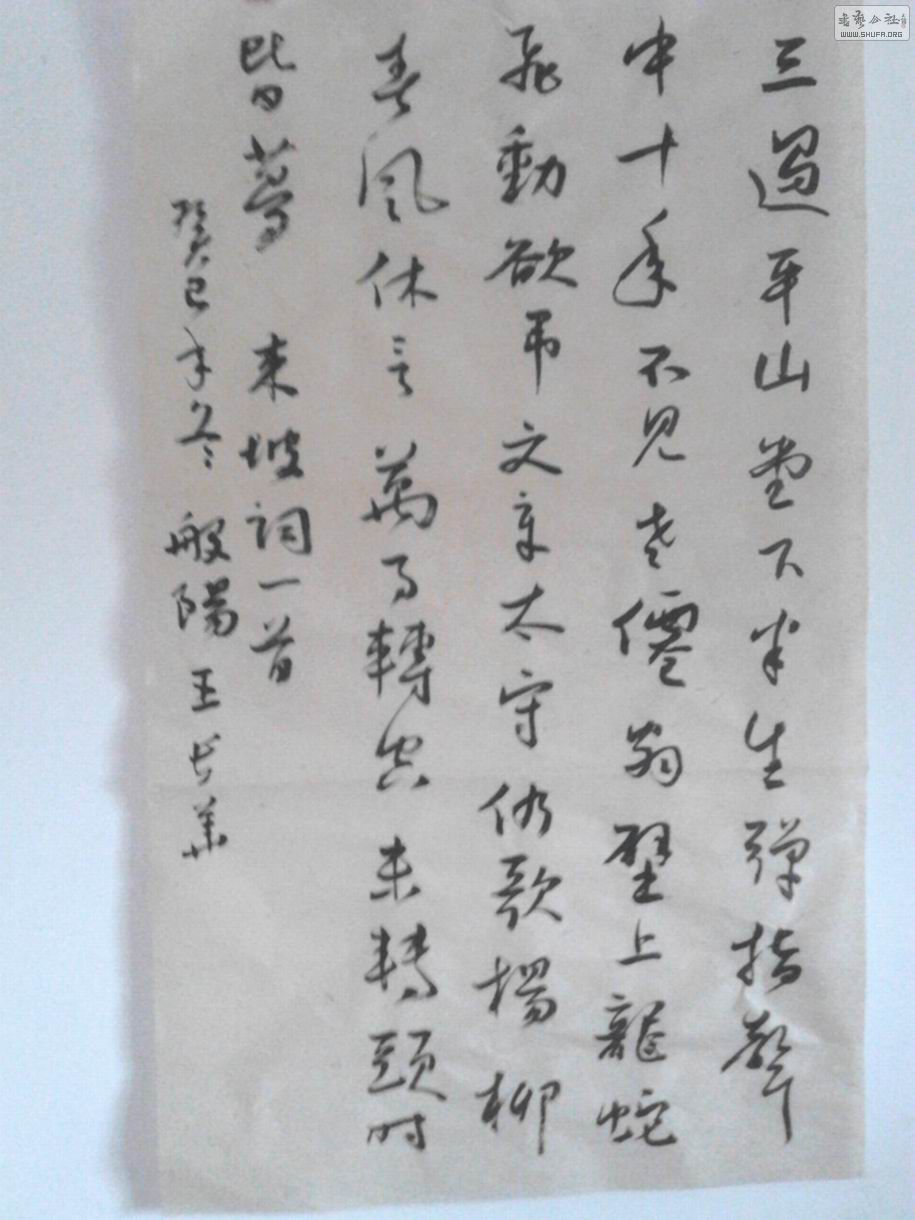 三過平山堂下半生彈指聲
中十年不見老僊翁壁上龍蛇
飛動欲弔文章太守仍歌楊柳
春風休言萬事轉空未轉頭時
皆夢 東坡詞一首
癸巳年冬 般陽王長
書藝公社
WWW.SHUFA.ORG